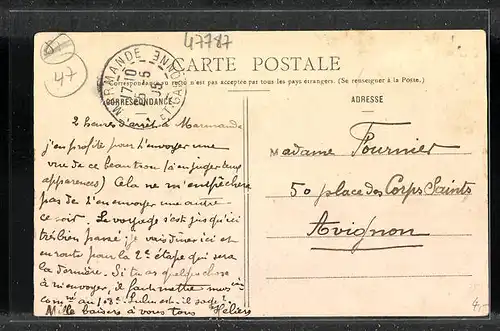 47787
47
CARTE POSTALE
MARMANDE
17-10
5-5
08
LOT-ET-GARONNE
La Correspondance au recto n'est pas acceptée par tous les pays étrangers. (Se renseigner à la Poste.)
CORRESPONDANCE
ADRESSE
2 heures d'arrêt à Marmande
j'en profite pour t'envoyer une
vue de ce beau trou (si on juge les
apparences) Cela ne m'empêchera
pas de t'en envoyer une autre
ce soir. Le voyage s'est jusqu'ici
très bien passé je vais dîner ici et
en route pour la 2e étape qui sera
la dernière. Si tu as quelque chose
à m'envoyer, il faut mettre
au 18e. Lulu est-il sage?
Mille baisers à vous tous
Madame Fournier
50 place des Corps Saints
Avignon
4,-